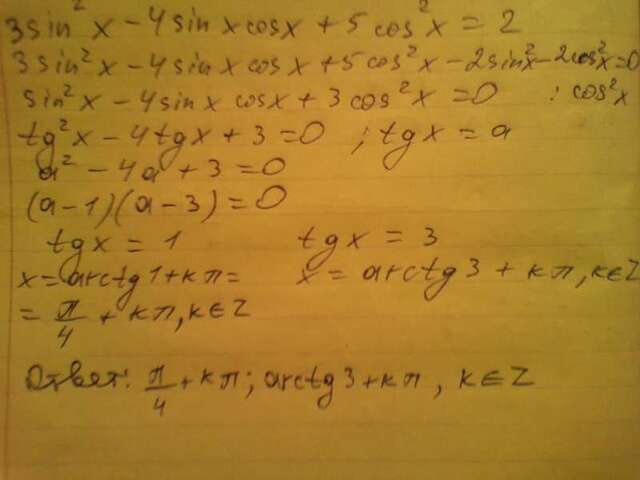 3sin²x - 4sinxcosx + 5cos²x = 2
3sin²x - 4sinx cosx + 5cos²x - 2sin²x - 2cos²x = 0
sin²x - 4sinx cosx + 3cos²x = 0 : cos²x
tg²x - 4tgx + 3 = 0 ; tgx = a
a² - 4a + 3 = 0
(a-1)(a-3) = 0
tgx = 1 tgx = 3
x = arctg1 + кπ = x = arctg3 + кπ, к∈Z
= π/4 + кπ, к∈Z
Ответ: π/4 + кπ; arctg3 + кπ, к∈Z